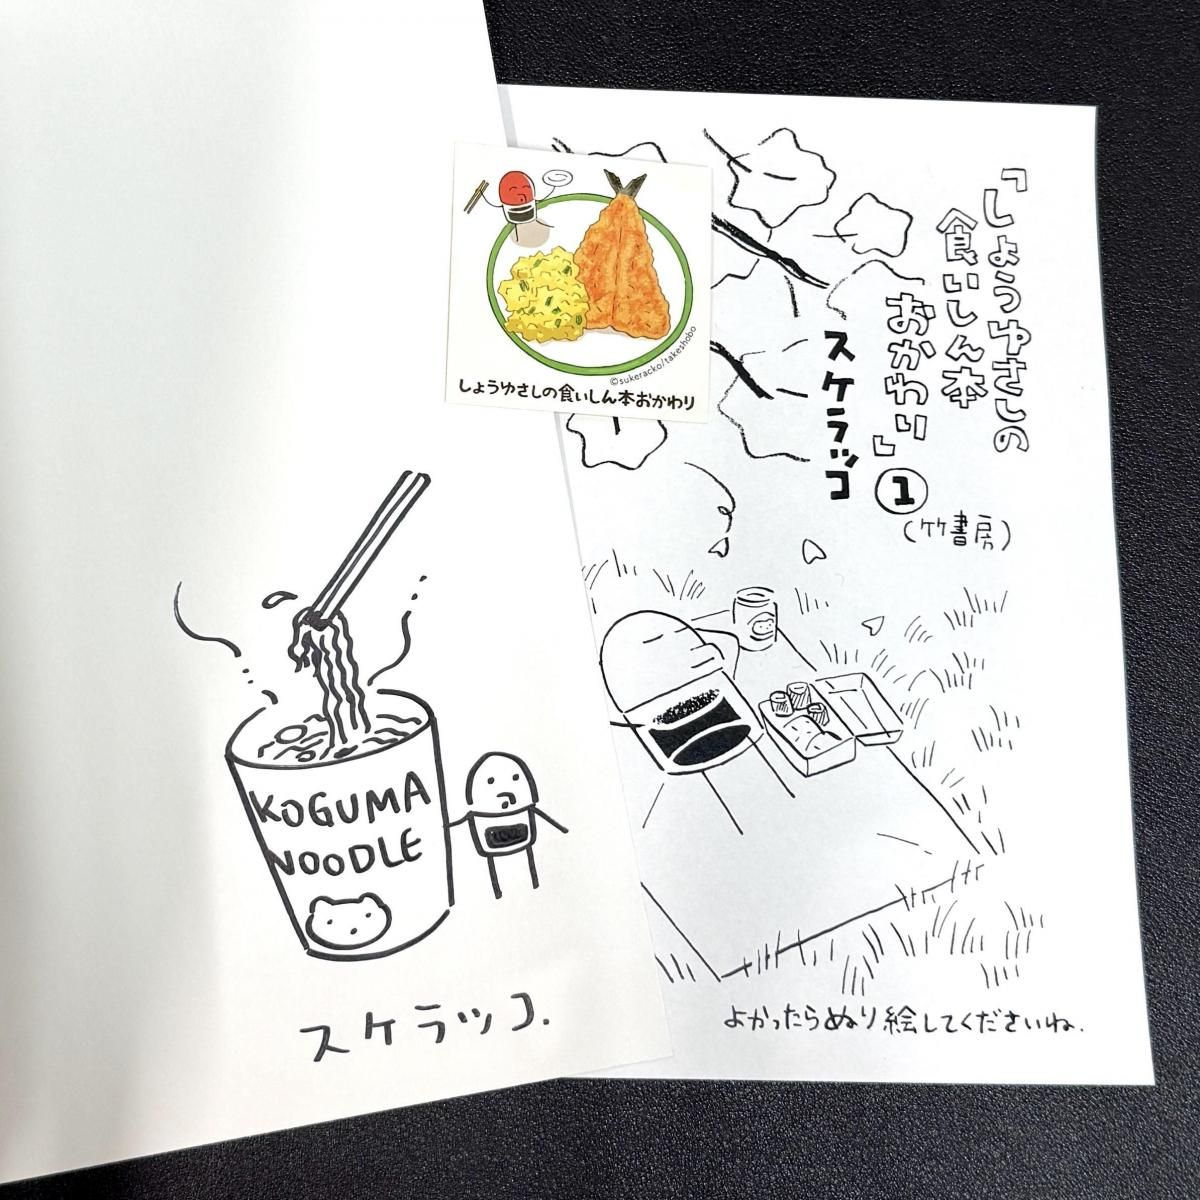 KOGUMA
NOODLE
スケラッコ.
©sukeracko/takeshobo
しょうゆさしの食いしん本おかわり
『しょうゆさしの
食いしん本
おかわり』
①
スケラッコ
(竹書房)
よかったらぬり絵してくださいね.